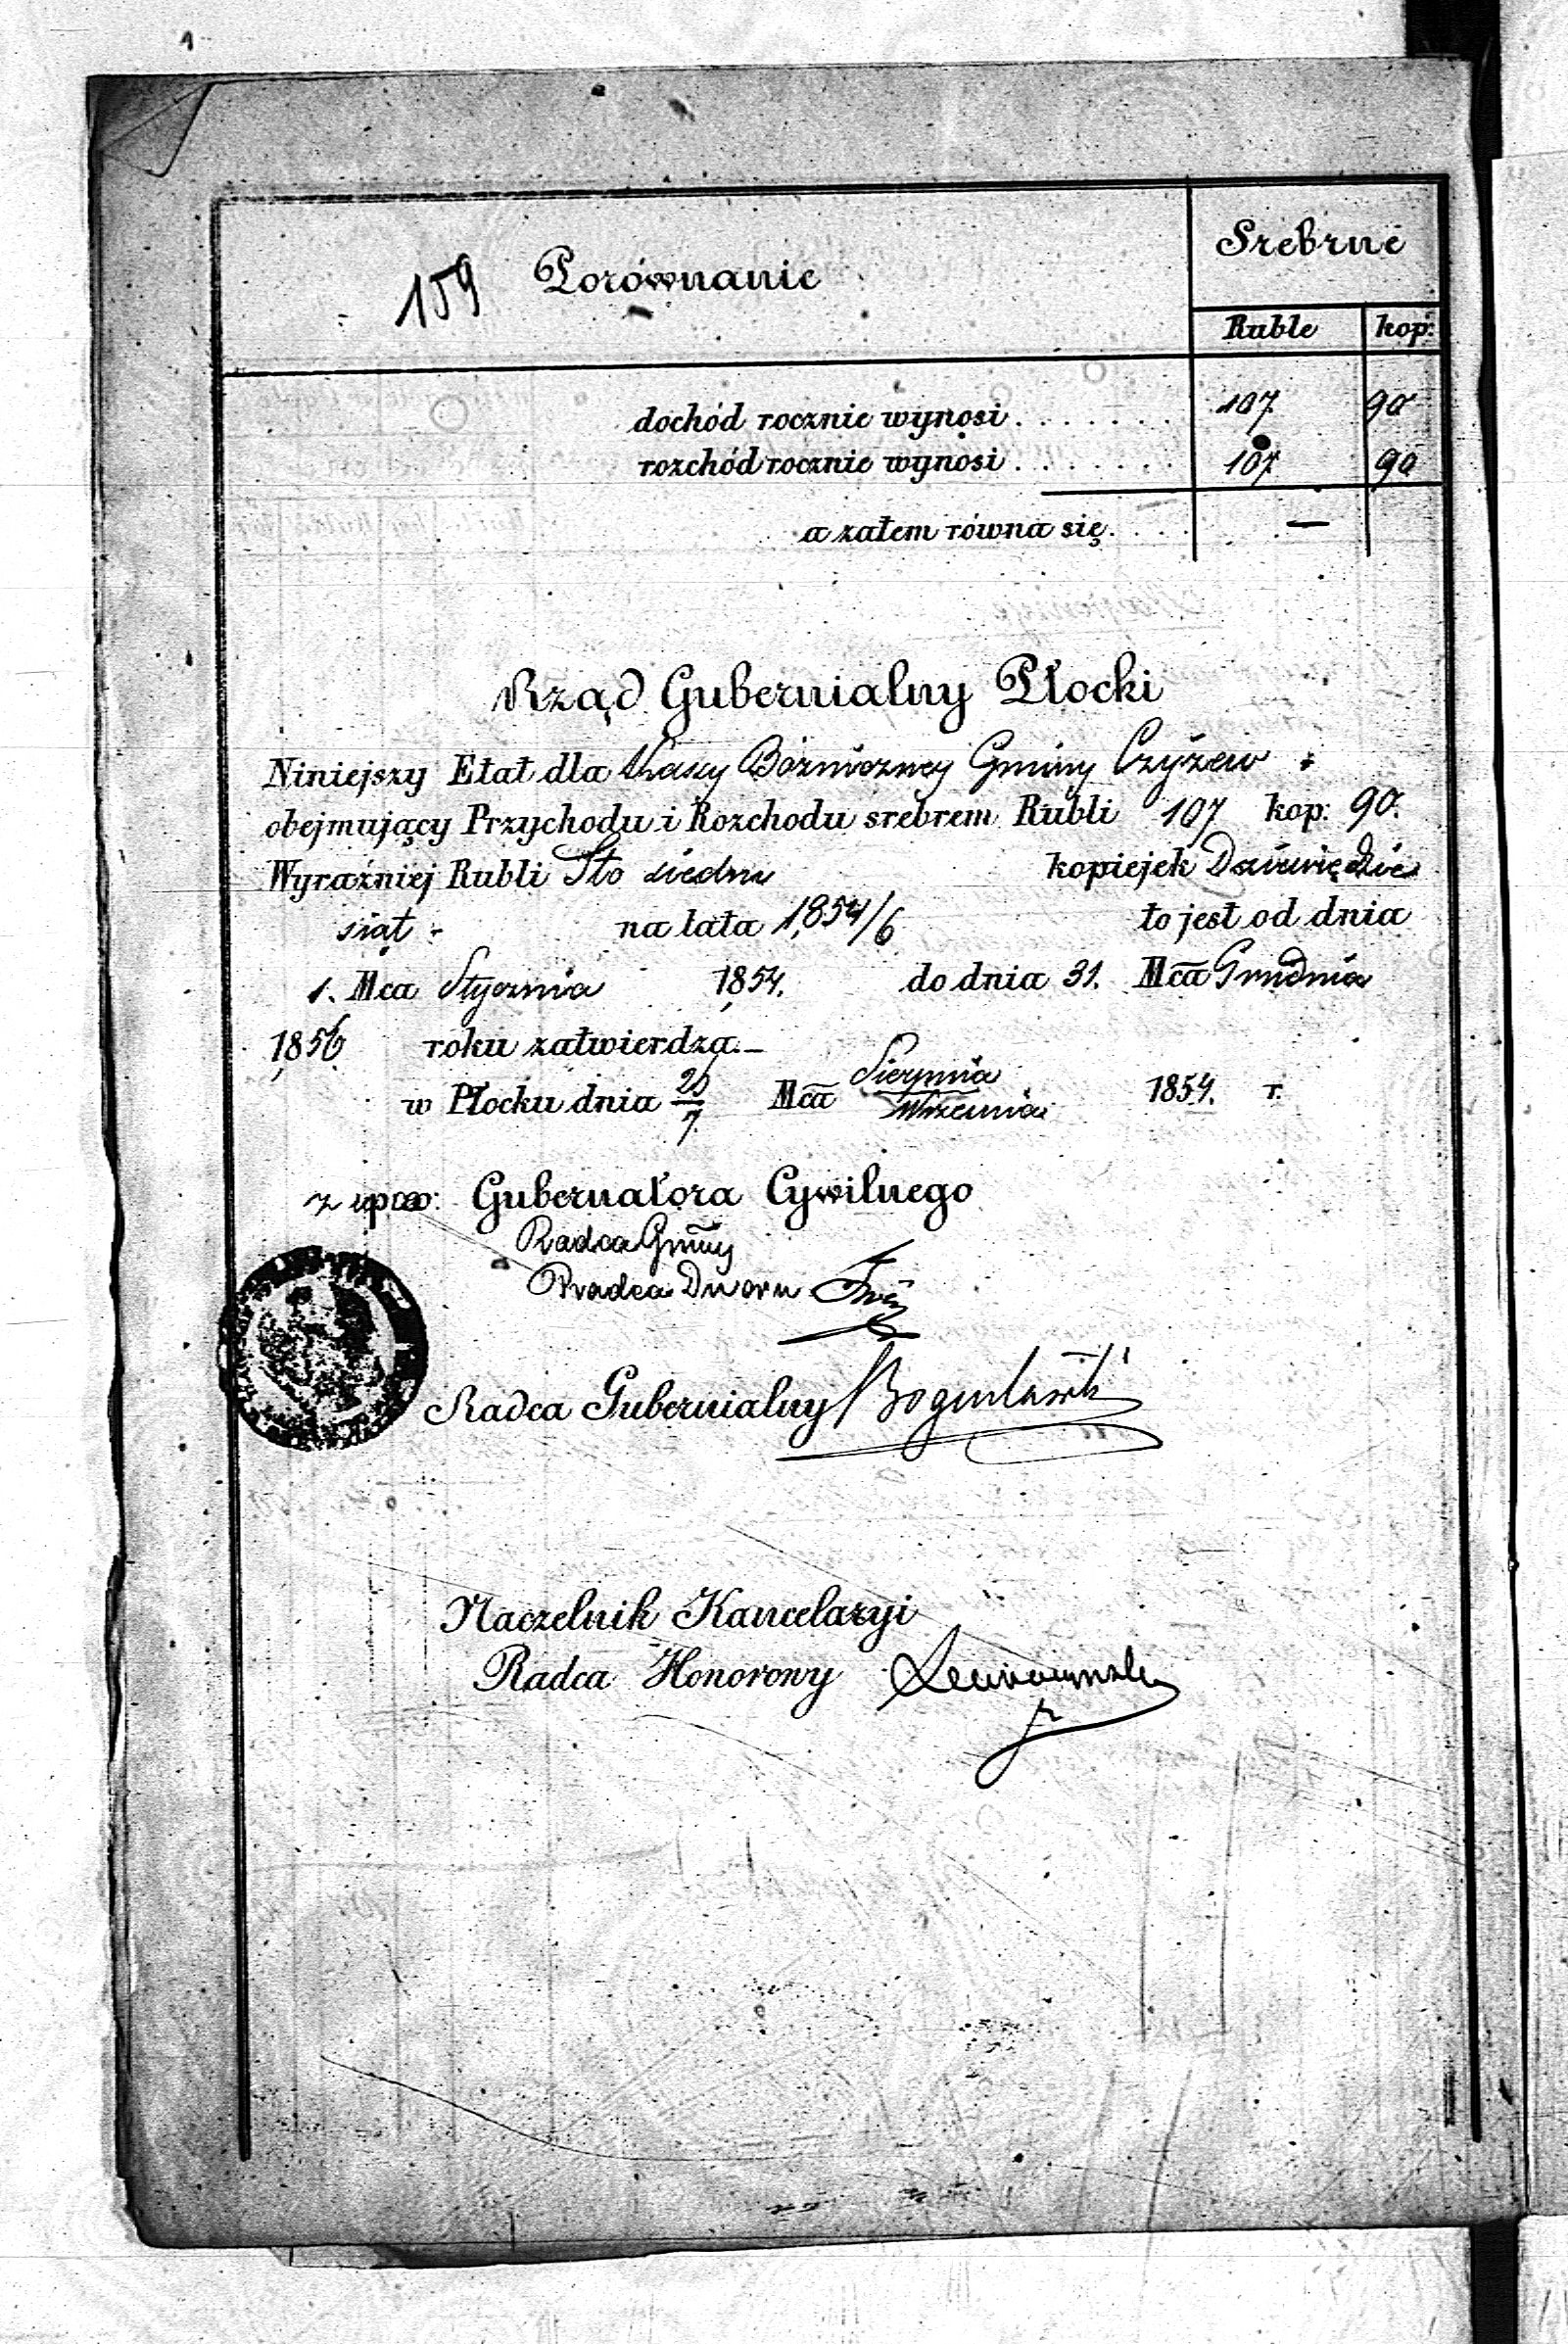 1
Srebrne
159 Porównanie
Ruble kop:
dochód rocznie wynosi . . . . . . . 107 90
rozchód rocznie wynosi . . . . . . . 107 90
a zatem równa się. . . . —
Rząd Gubernialny Płocki
Niniejszy Etat dla Kassy Bóżniczney Gminy Czyżew
obejmujący Przychodu i Rozchodu srebrem Rubli 107 kop: 90.
Wyraźniej Rubli Sto siedm kopiejek Dziewiędzie
siąt na lata 1854/6 to jest od dnia
1. Mca Stycznia 1854. do dnia 31. Mca Grudnia
1856 roku zatwierdza.—
w Płocku dnia 26/7 Mca Sierpnia/Września 1854. r.
z upow: Gubernatora Cywilnego
Radca
Radca Dworu
Radca Gubernialny
Naczelnik Kancelaryi
Radca Honorowy